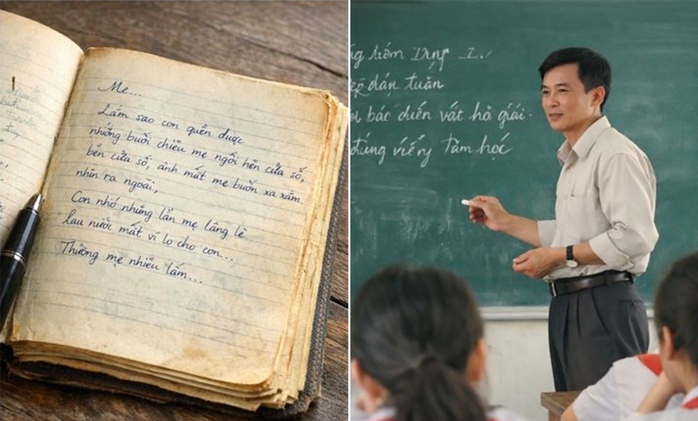 Mẹ...
Làm sao con quên được
những buổi chiều mẹ ngồi bên cửa sổ,
bên cửa sổ, ánh mắt mẹ buồn xa xăm.
nhìn ra ngoài,
Con nhớ những lần mẹ lặng lẽ
lau nước mắt vì lo cho con...
Thương mẹ nhiều lắm...
dán tuần
bác duến vất hả giải.
đúng viếng tàm học